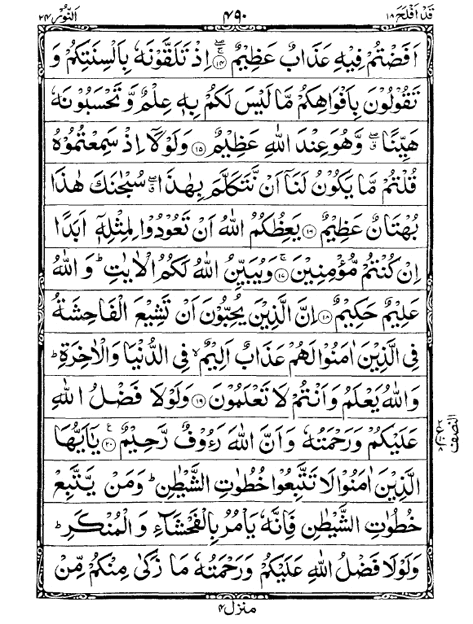 قَدْ اَفْلَحَ ١٨ ٤٩٠ اَلنُّوْر ٢٤
اَفَضْتُمْ فِیْهِ عَذَابٌ عَظِیْمٌ ۚۖ﴿۱۴﴾ اِذْ تَلَقَّوْنَهٗ بِاَلْسِنَتِكُمْ وَ
تَقُوْلُوْنَ بِاَفْوَاهِكُمْ مَّا لَیْسَ لَكُمْ بِهٖ عِلْمٌ وَّ تَحْسَبُوْنَهٗ
هَیِّنًا ۖۗ وَّ هُوَ عِنْدَ اللّٰهِ عَظِیْمٌ ﴿۱۵﴾ وَ لَوْلَاۤ اِذْ سَمِعْتُمُوْهُ
قُلْتُمْ مَّا یَكُوْنُ لَنَاۤ اَنْ نَّتَكَلَّمَ بِهٰذَا ۖۗ سُبْحٰنَكَ هٰذَا
بُهْتَانٌ عَظِیْمٌ ﴿۱۶﴾ یَعِظُكُمُ اللّٰهُ اَنْ تَعُوْدُوْا لِمِثْلِهٖۤ اَبَدًا
اِنْ كُنْتُمْ مُّؤْمِنِیْنَ ﴿ۚ۱۷﴾ وَ یُبَیِّنُ اللّٰهُ لَكُمُ الْاٰیٰتِ ؕ وَ اللّٰهُ
عَلِیْمٌ حَكِیْمٌ ﴿۱۸﴾ اِنَّ الَّذِیْنَ یُحِبُّوْنَ اَنْ تَشِیْعَ الْفَاحِشَةُ
فِی الَّذِیْنَ اٰمَنُوْا لَهُمْ عَذَابٌ اَلِیْمٌ ۙ فِی الدُّنْیَا وَ الْاٰخِرَةِ ؕ
وَ اللّٰهُ یَعْلَمُ وَ اَنْتُمْ لَا تَعْلَمُوْنَ ﴿۱۹﴾ وَ لَوْلَا فَضْلُ اللّٰهِ
عَلَیْكُمْ وَ رَحْمَتُهٗ وَ اَنَّ اللّٰهَ رَءُوْفٌ رَّحِیْمٌ ﴿۲۰﴾ یٰۤاَیُّهَا
الَّذِیْنَ اٰمَنُوْا لَا تَتَّبِعُوْا خُطُوٰتِ الشَّیْطٰنِ ؕ وَ مَنْ یَّتَّبِعْ
خُطُوٰتِ الشَّیْطٰنِ فَاِنَّهٗ یَاْمُرُ بِالْفَحْشَآءِ وَ الْمُنْكَرِ ؕ
وَ لَوْلَا فَضْلُ اللّٰهِ عَلَیْكُمْ وَ رَحْمَتُهٗ مَا زَكٰی مِنْكُمْ مِّنْ
منزل ٤
النصف